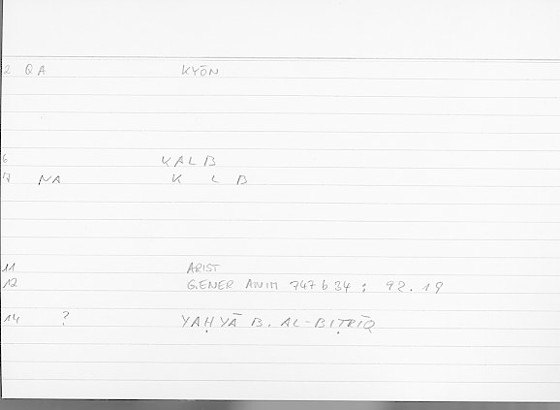 2 QA KYŌN
6 KALB
7 NA K L B
11 ARIST
12 GENER ANIM 747 b 34 : 92.19
14 ? YAḤYĀ B. AL-BIṬRĪQ